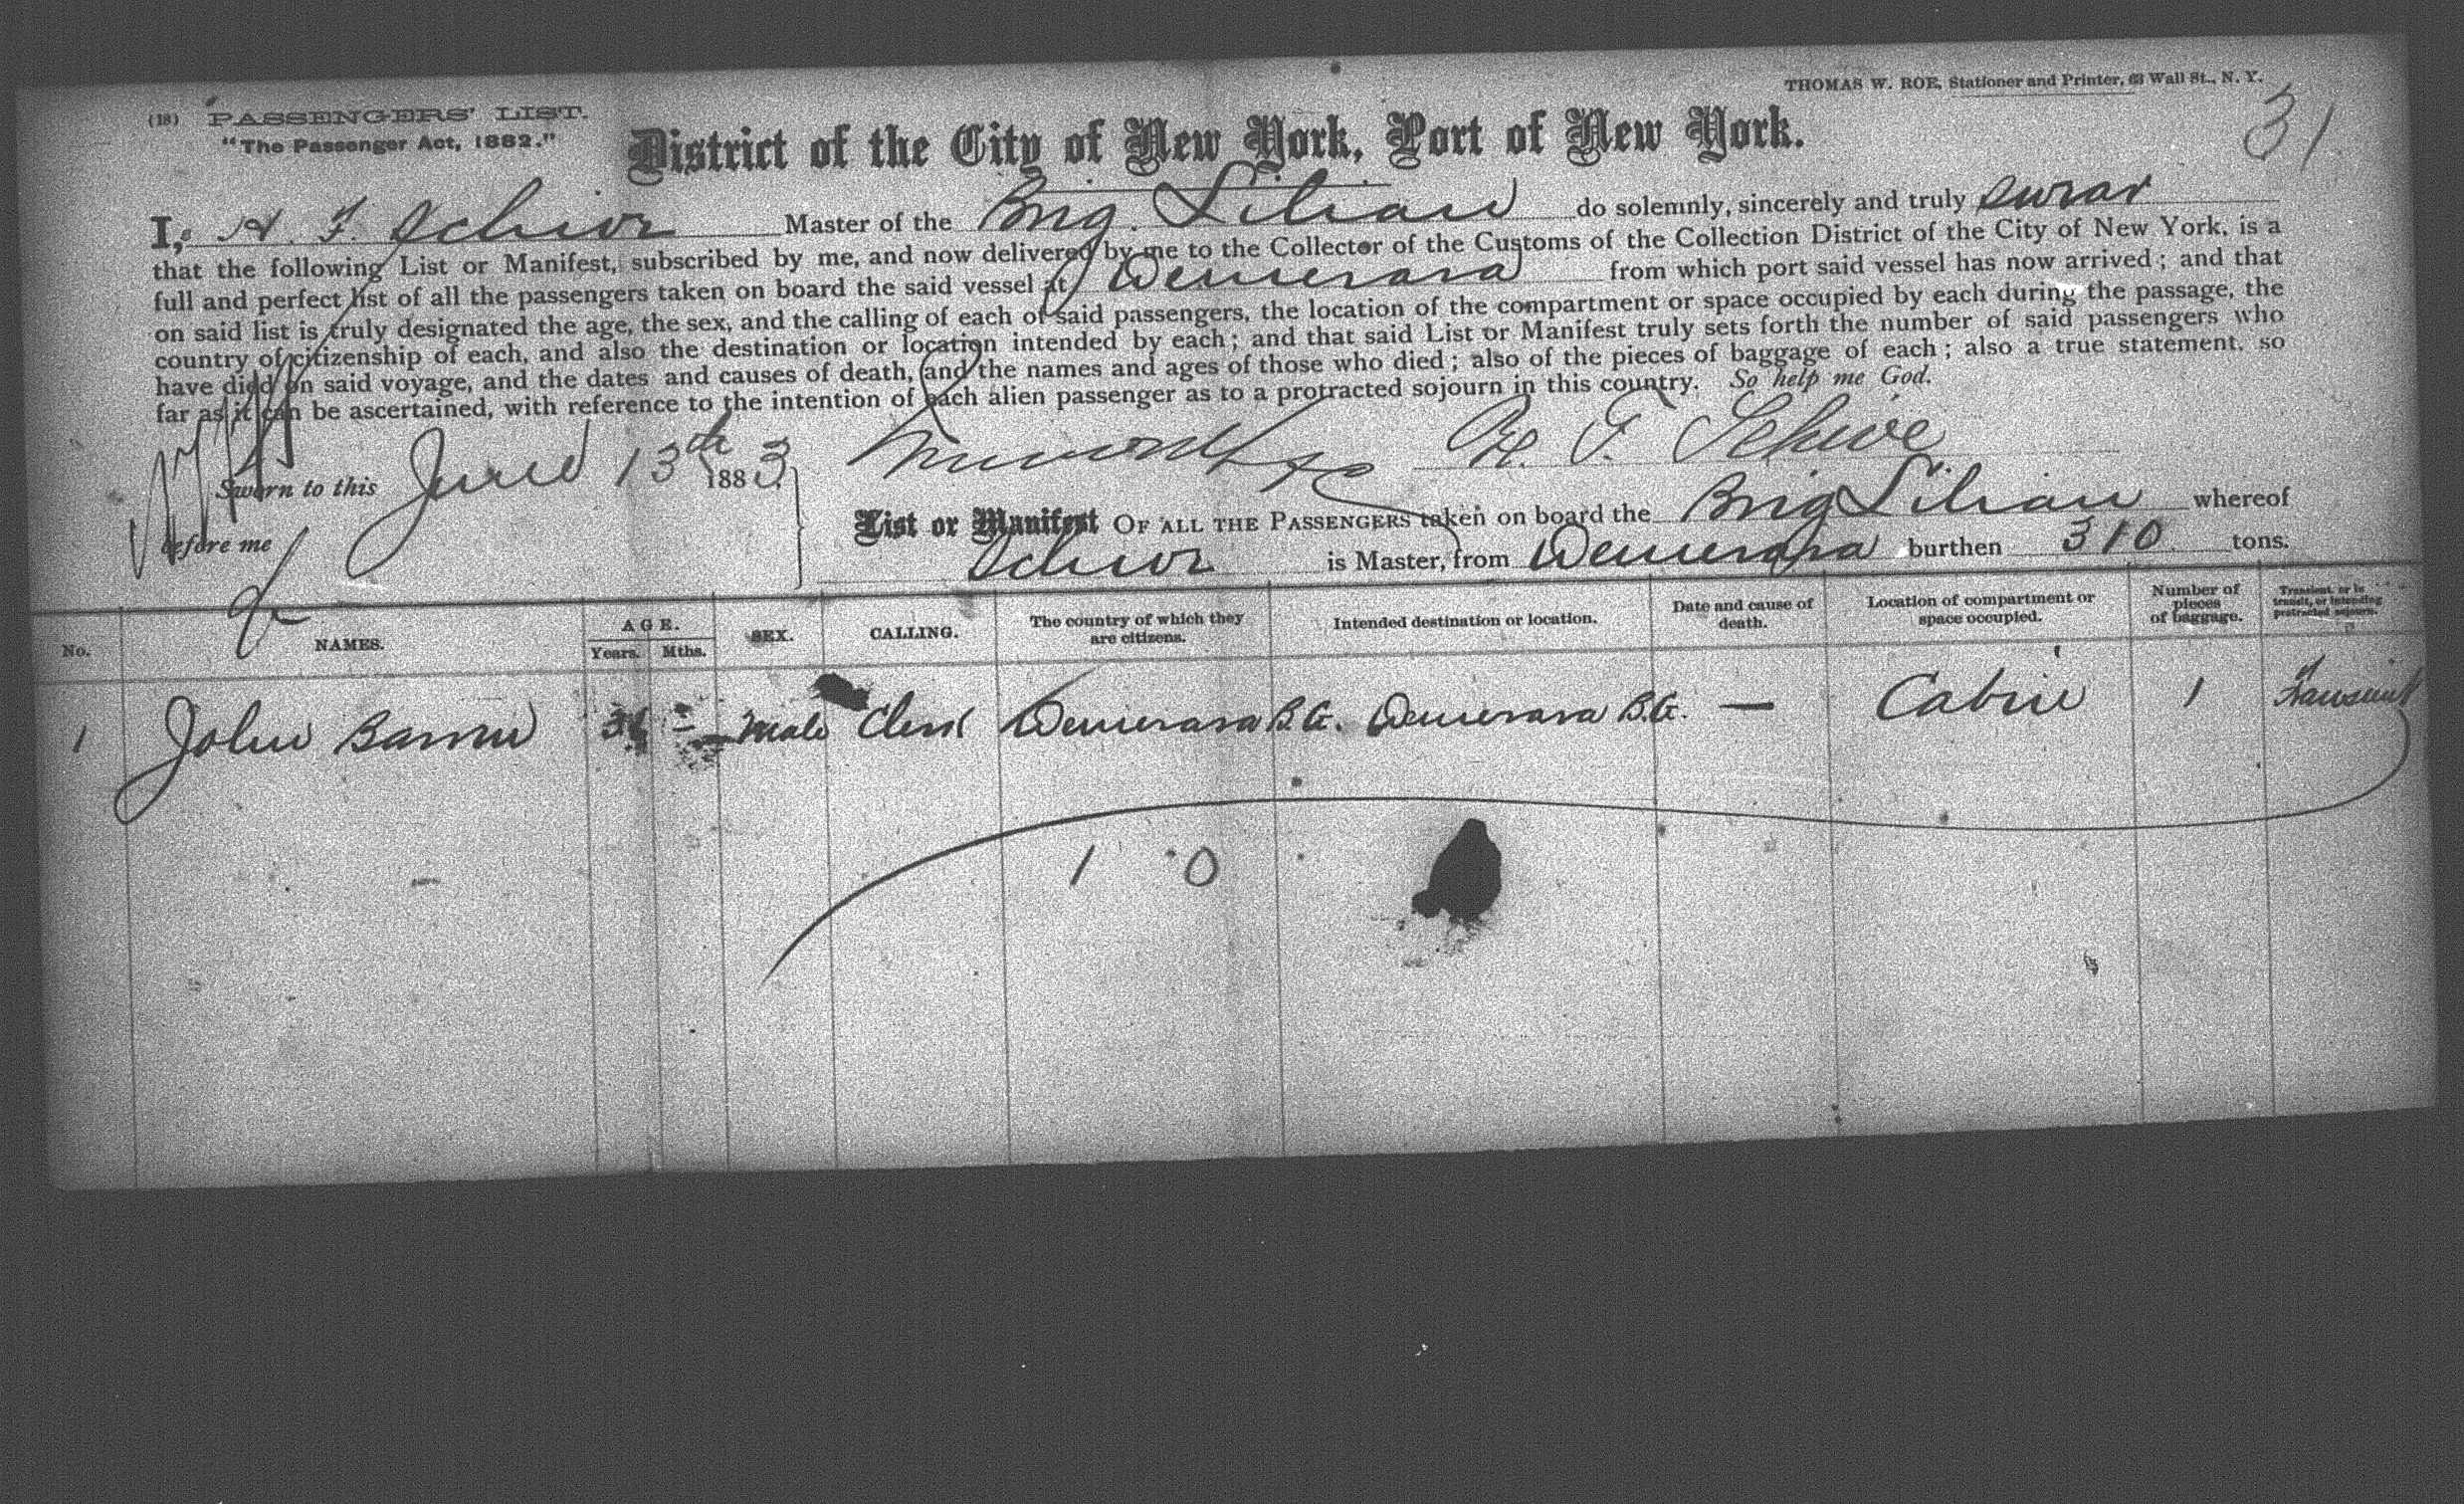 THOMAS W. ROE, Stationer and Printer, 63 Wall St., N. Y.
(18) PASSENGERS' LIST.
"The Passenger Act, 1882."
31
District of the City of New York, Port of New York.
I, H. F. Master of the Brig. Lilian do solemnly, sincerely and truly swear
that the following List or Manifest, subscribed by me, and now delivered by me to the Collector of the Customs of the Collection District of the City of New York, is a
full and perfect list of all the passengers taken on board the said vessel at Demerara from which port said vessel has now arrived; and that
on said list is truly designated the age, the sex, and the calling of each of said passengers, the location of the compartment or space occupied by each during the passage, the
country of citizenship of each, and also the destination or location intended by each; and that said List or Manifest truly sets forth the number of said passengers who
have died on said voyage, and the dates and causes of death, and the names and ages of those who died; also of the pieces of baggage of each; also a true statement, so
far as it can be ascertained, with reference to the intention of each alien passenger as to a protracted sojourn in this country. So help me God.
Sworn to this June 13th 1883.
before me
H. F.
List or Manifest OF ALL THE PASSENGERS taken on board the Brig Lilian whereof
is Master, from Demerara burthen 310 tons.
No. NAMES. AGE. Years. Mths. SEX. CALLING. The country of which they are citizens. Intended destination or location. Date and cause of death. Location of compartment or space occupied. Number of pieces of baggage. Transient, or in transit, or intending protracted sojourn.
1 John Male Clerk Demerara B.G. Demerara B.G. — Cabin 1 Transient
1 0